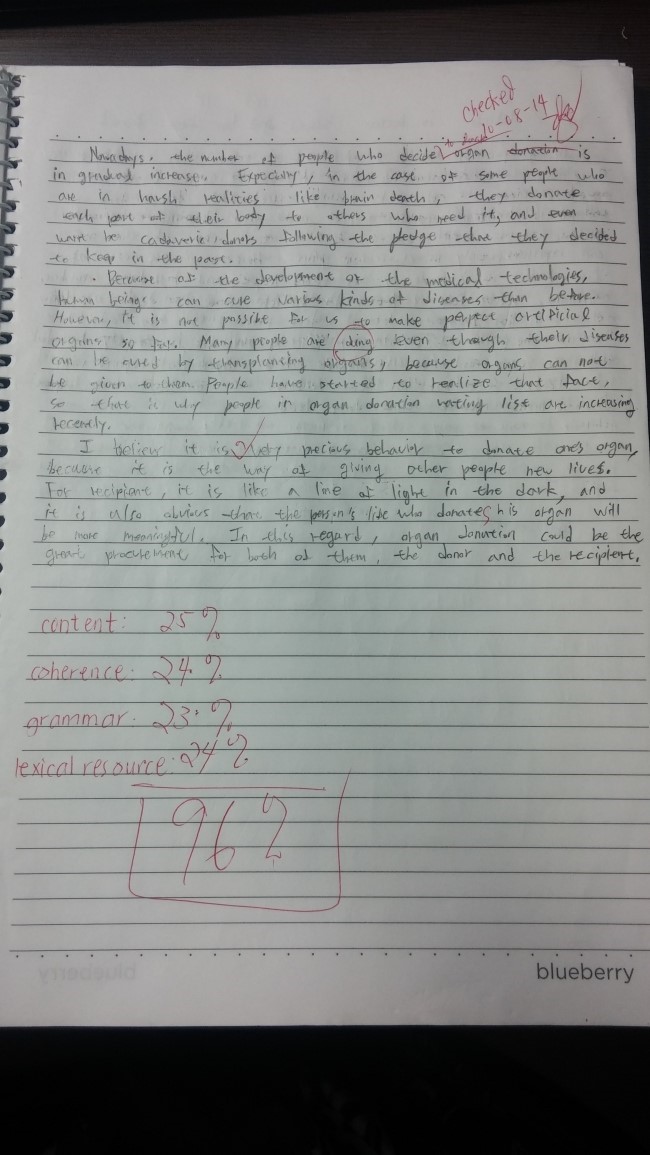 checked
10-08-14
Nowadays. the number of people who decide to donate organ donation is
in gradual increase. Expecially, in the case of some people who
are in harsh realities like brain death, they donate
each part of their body to others who need it, and even
want be cadaveric donors following the pledge that they decided
to keep in the past.
. Because of the development of the medical technologies,
human beings can cure various kinds of diseases than before.
However, it is not possible for us to make perfect artificial
organs so far. Many people are ding even though their diseases
can be cured by transplanting organs, because organs can not
be given to them. People have started to realize that fact,
so that is why people in organ donation wating list are increasing
recently.
I believe it is very precious behavior to donate one's organ,
because it is the way of giving other people new lives.
For recipient, it is like a line of light in the dark, and
it is also obvious that the person's life who donates his organ will
be more meaningful. In this regard, organ donation could be the
great procurement for both of them, the donor and the recipient.
content: 25%
coherence: 24%
grammar: 23%
lexical resource: 24%
96%
blueberry